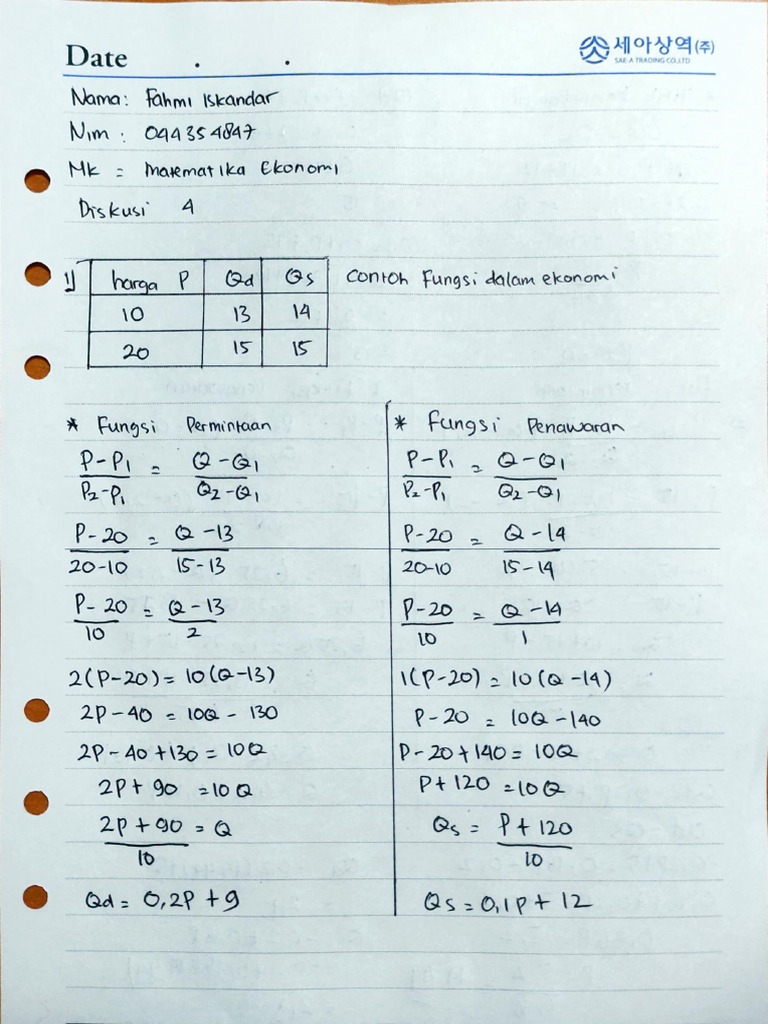 Date . .
세아상역(주)
SAE-A TRADING CO.,LTD
Nama: Fahmi Iskandar
Nim : 044354847
Mk = Matematika Ekonomi
Diskusi 4
1) harga P Qd Qs Contoh Fungsi dalam ekonomi
10 13 14
20 15 15
* Fungsi Permintaan
P-P₁ / P₂-P₁ = Q-Q₁ / Q₂-Q₁
P-20 / 20-10 = Q-13 / 15-13
P-20 / 10 = Q-13 / 2
2(P-20) = 10(Q-13)
2P-40 = 10Q - 130
2P-40+130 = 10Q
2P+90 = 10Q
2P+90 / 10 = Q
Qd = 0,2P+9
* Fungsi Penawaran
P-P₁ / P₂-P₁ = Q-Q₁ / Q₂-Q₁
P-20 / 20-10 = Q-14 / 15-14
P-20 / 10 = Q-14 / 1
1(P-20) = 10(Q-14)
P-20 = 10Q-140
P-20+140 = 10Q
P+120 = 10Q
Qs = P+120 / 10
Qs = 0,1P+12